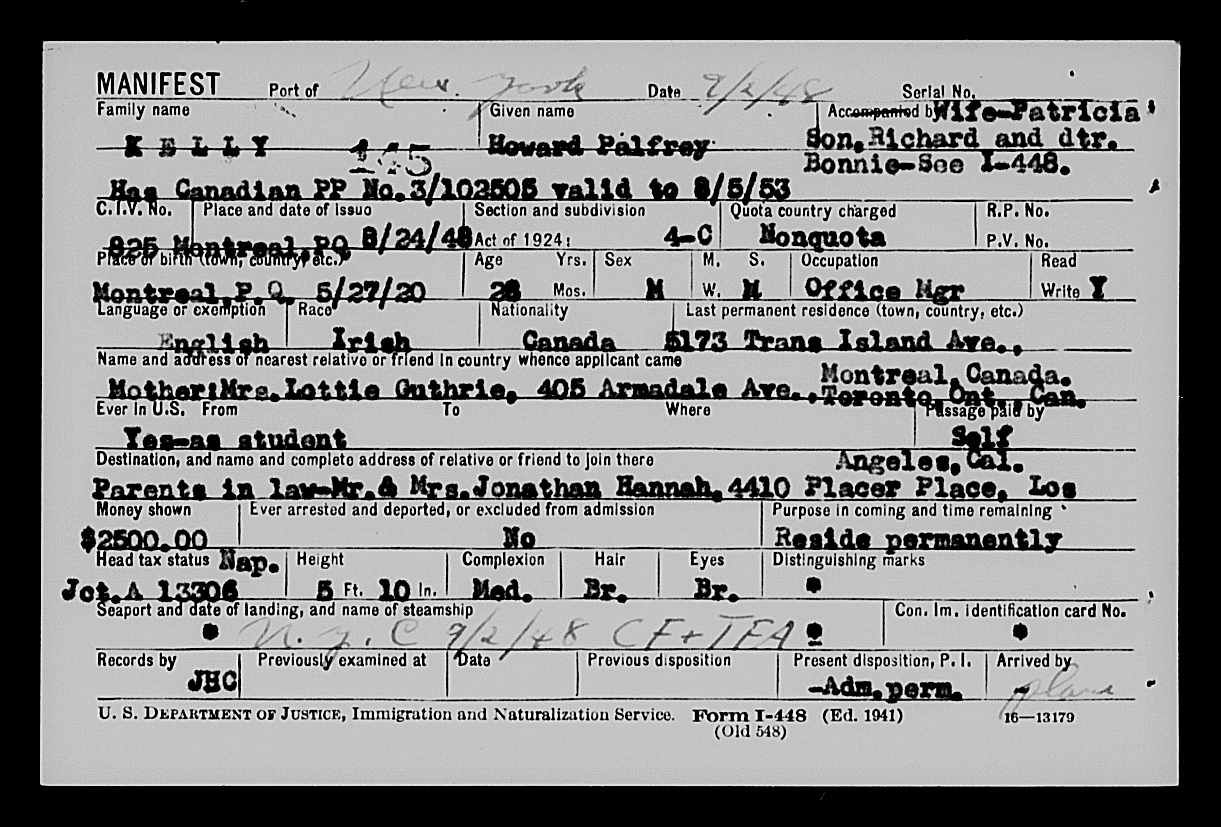 MANIFEST Port of New York Date 9/2/48 Serial No.
Family name Given name Accompanied by Wife-Patricia
KELLY 145 Howard Palfrey Son, Richard and dtr.
Bonnie-See I-448.
Has Canadian PP No. 3/102505 valid to 8/5/53
C.I.V. No. Place and date of issue Section and subdivision Quota country charged R.P. No.
825 Montreal,PQ 8/24/48 Act of 1924: 4-C Nonquota P.V. No.
Place of birth (town, country, etc.) Age Yrs. Sex M. S. Occupation Read
Montreal,P.Q. 5/27/20 28 Mos. M W. M Office Mgr Write Y
Language or exemption Race Nationality Last permanent residence (town, country, etc.)
English Irish Canada 5173 Trans Island Ave.,
Name and address of nearest relative or friend in country whence applicant came
Montreal, Canada.
Mother:Mrs.Lottie Guthrie, 405 Armadale Ave., Toronto, Ont., Can.
Ever in U.S. From To Where Passage paid by
Yes-as student Self
Destination, and name and complete address of relative or friend to join there Angeles, Cal.
Parents in law-Mr.& Mrs.Jonathan Hannah, 4410 Placer Place, Los
Money shown Ever arrested and deported, or excluded from admission Purpose in coming and time remaining
$2500.00 No Reside permanently
Head tax status Nap. Height Complexion Hair Eyes Distinguishing marks
Jct.A 13306 5 Ft. 10 In. Med. Br. Br.
Seaport and date of landing, and name of steamship Con. Im. identification card No.
N.Y.C 9/2/48 CF+TFA
Records by Previously examined at Date Previous disposition Present disposition, P. I. Arrived by
JHC -Adm.perm. plane
U. S. DEPARTMENT OF JUSTICE, Immigration and Naturalization Service. Form I-448 (Ed. 1941) 16—13179
(Old 548)